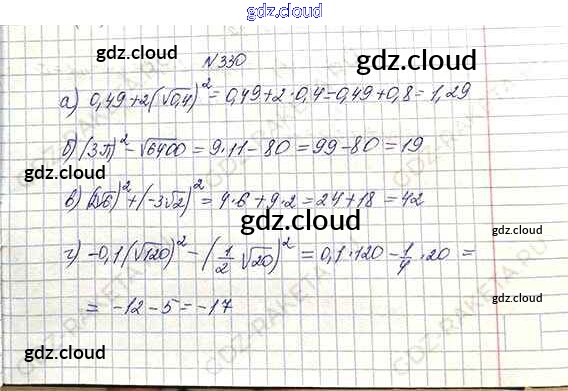 gdz.cloud
gdz.cloud
gdz.cloud
N330
а) 0,49+2(√0,4)² = 0,49+2·0,4=0,49+0,8=1,29
б) (3√11)² - √6400 = 9·11-80 = 99-80 = 19
gdz.cloud
в) (2√6)² + (-3√2)² = 4·6+9·2 = 24+18 = 42
gdz.cloud
gdz.cloud
г) -0,1(√120)² - (1/2 √20)² = 0,1·120 - 1/4 ·20 =
gdz.cloud
= -12-5 = -17
gdz.cloud
gdz.cloud
GDZ-RAKETA.RU